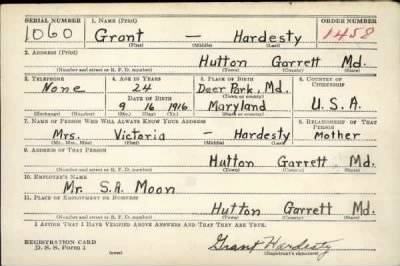 SERIAL NUMBER 1. NAME (Print) ORDER NUMBER
1060 Grant — Hardesty 1458
(First) (Middle) (Last)
2. ADDRESS (Print)
Hutton Garrett Md.
(Number and street or R. F. D. number) (Town) (County) (State)
3. TELEPHONE 4. AGE IN YEARS 5. PLACE OF BIRTH 6. COUNTRY OF CITIZENSHIP
None 24 Deer Park, Md.
(Town or county)
DATE OF BIRTH
9 16 1916 Maryland U.S.A.
(Exchange) (Number) (Mo.) (Day) (Yr.) (State or country)
7. NAME OF PERSON WHO WILL ALWAYS KNOW YOUR ADDRESS 8. RELATIONSHIP OF THAT PERSON
Mrs. Victoria — Hardesty Mother
(Mr., Mrs., Miss) (First) (Middle) (Last)
9. ADDRESS OF THAT PERSON
Hutton Garrett Md.
(Number and street or R. F. D. number) (Town) (County) (State)
10. EMPLOYER'S NAME
Mr. S.A. Moon
11. PLACE OF EMPLOYMENT OR BUSINESS
Hutton Garrett Md.
(Number and street or R. F. D. number) (Town) (County) (State)
I AFFIRM THAT I HAVE VERIFIED ABOVE ANSWERS AND THAT THEY ARE TRUE.
REGISTRATION CARD
D. S. S. Form 1 (over) Grant Hardesty
(Registrant's signature)